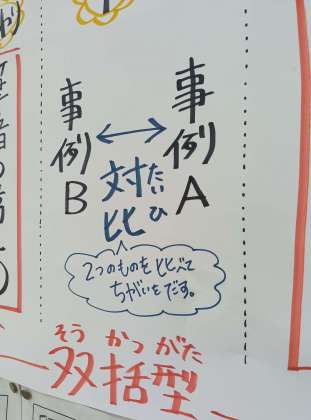 事例A
対比
たいひ
事例B
2つのものを比べて
ちがいをだす。
そうかつがた
双括型